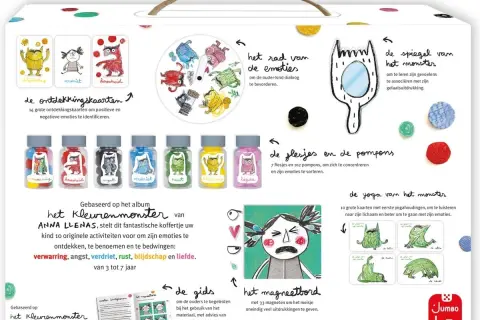 de ontdekkingskaarten
14 grote ontdekkingskaarten om positieve en
negatieve emoties te identificeren.
het rad van
de emoties
om de ouder-kind dialoog
te bevorderen.
de spiegel van
het monster
om te leren zijn gevoelens
te associëren met zijn
gelaatsuitdrukking.
de flesjes en de pompons
7 flesjes en 102 pompons, om zich te concentreren
en zijn emoties te sorteren.
Gebaseerd op het album
het Kleurenmonster van
ANNA LLENAS, stelt dit fantastische koffertje uw
kind 10 originele activiteiten voor om zijn emoties te
ontdekken, te benoemen en te bedwingen:
verwarring, angst, verdriet, rust, blijdschap en liefde.
van 3 tot 7 jaar
de yoga van het monster
10 grote kaarten met eerste yogahoudingen, om te luisteren
naar zijn lichaam en beter om te gaan met zijn emoties.
het magneetbord
met 33 magneten om het meisje
oneindig veel uitdrukkingen te geven.
de gids
om de ouders te begeleiden
bij het gebruik van het
materiaal, met advies van
Gebaseerd op
het Kleurenmonster
Jumbo